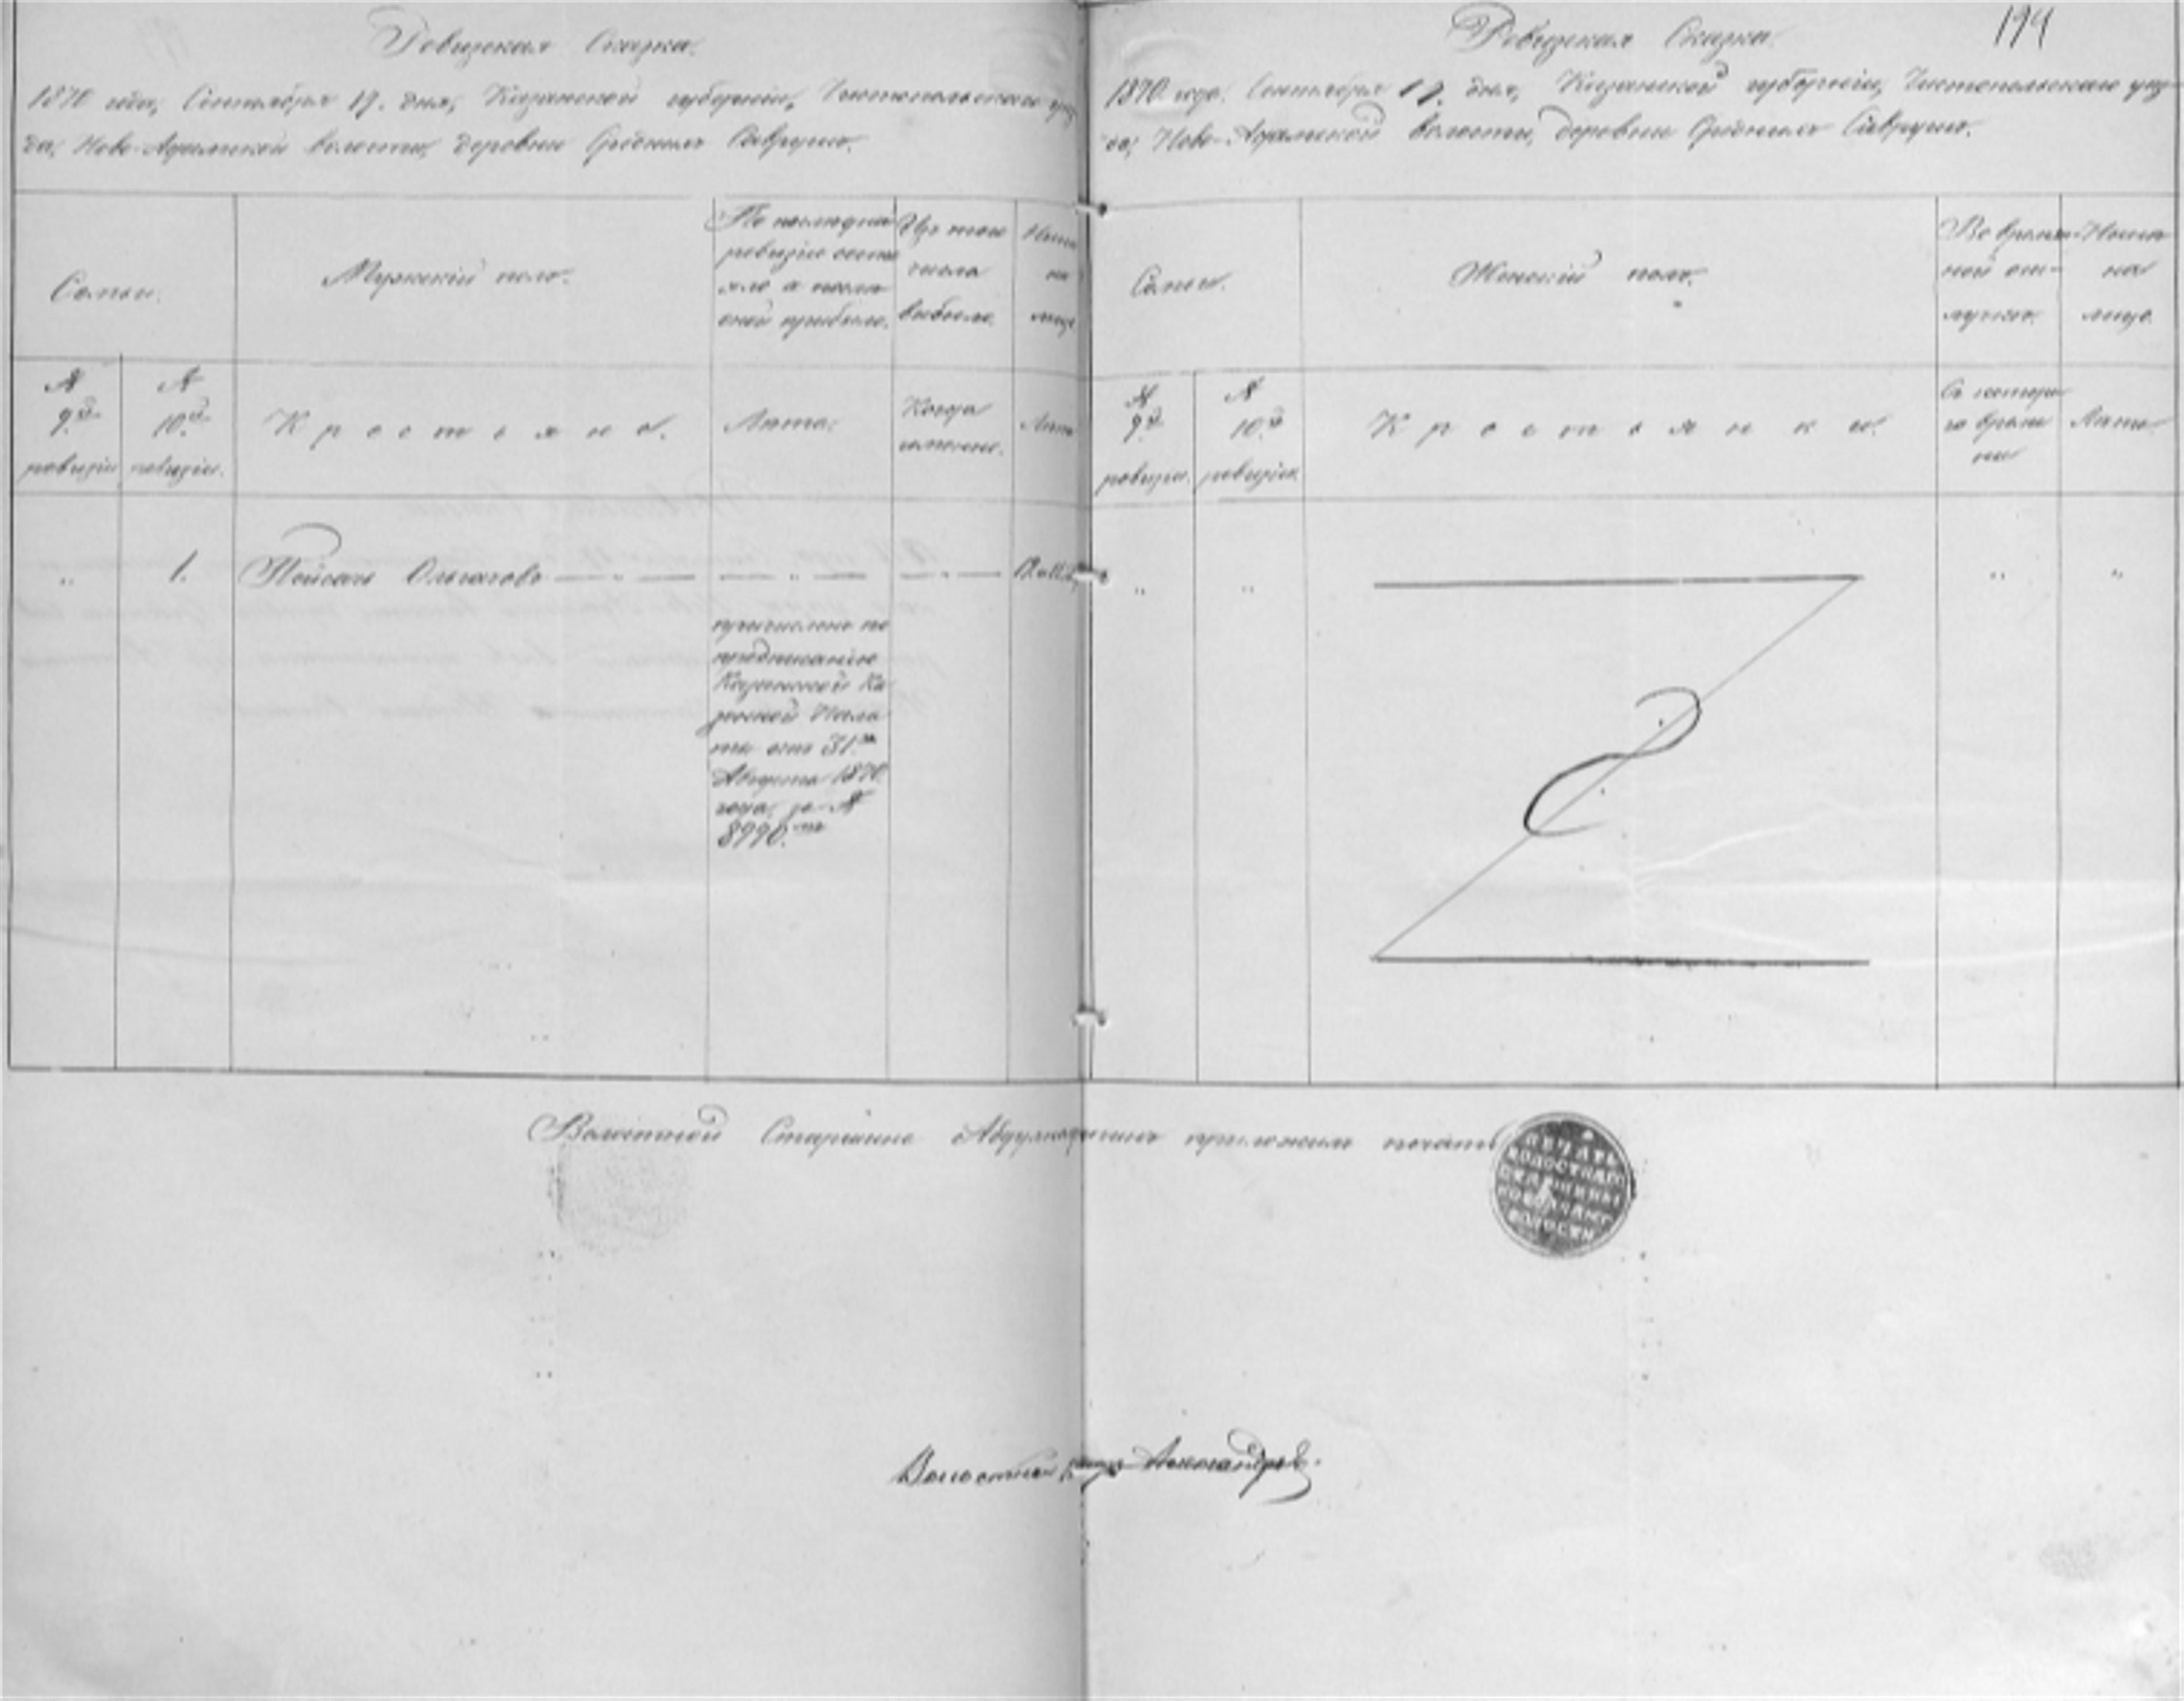 Ревизская Сказка.
1870 года, Сентября 17. дня, Казанской губерніи, Чистопольскаго уѣз-
да, Ново-Адамской волости, деревни Средних Саврушъ.
Семьи.
Мужескій полъ.
По последней
ревизіи состо
яло и после
оной прибыло.
Изъ того
числа
выбыло.
Ныне
на
лице
№
9й
ревизіи
№
10й
ревизіи.
Крестьяне.
Лета.
Когда
именно.
Лета
„
1.
— „ —
— „ —
причисленъ по
предписанію
Казанской Ка
зенной Пала
ты отъ 31го
Августа 1870
года, за №
8990.мъ
194
Ревизская Сказка.
1870 года. Сентября 17. дня, Казанской губерніи, Чистопольскаго уѣз-
да, Ново-Адамской волости, деревни Средних Саврушъ.
Семьи.
Женскій полъ.
Во времен-
ной от-
лучке.
Ныне
на
лице.
№
9й
ревизіи.
№
10й
ревизіи.
Крестьянки.
Съ котора
го време
ни
Лета.
„
„
„
„
Волостной Старшина приложилъ печать
ПЕЧАТЬ
ВОЛОСТНАГО
СТАРШИНЫ
ВОЛОСТИ
Волостной Александров.